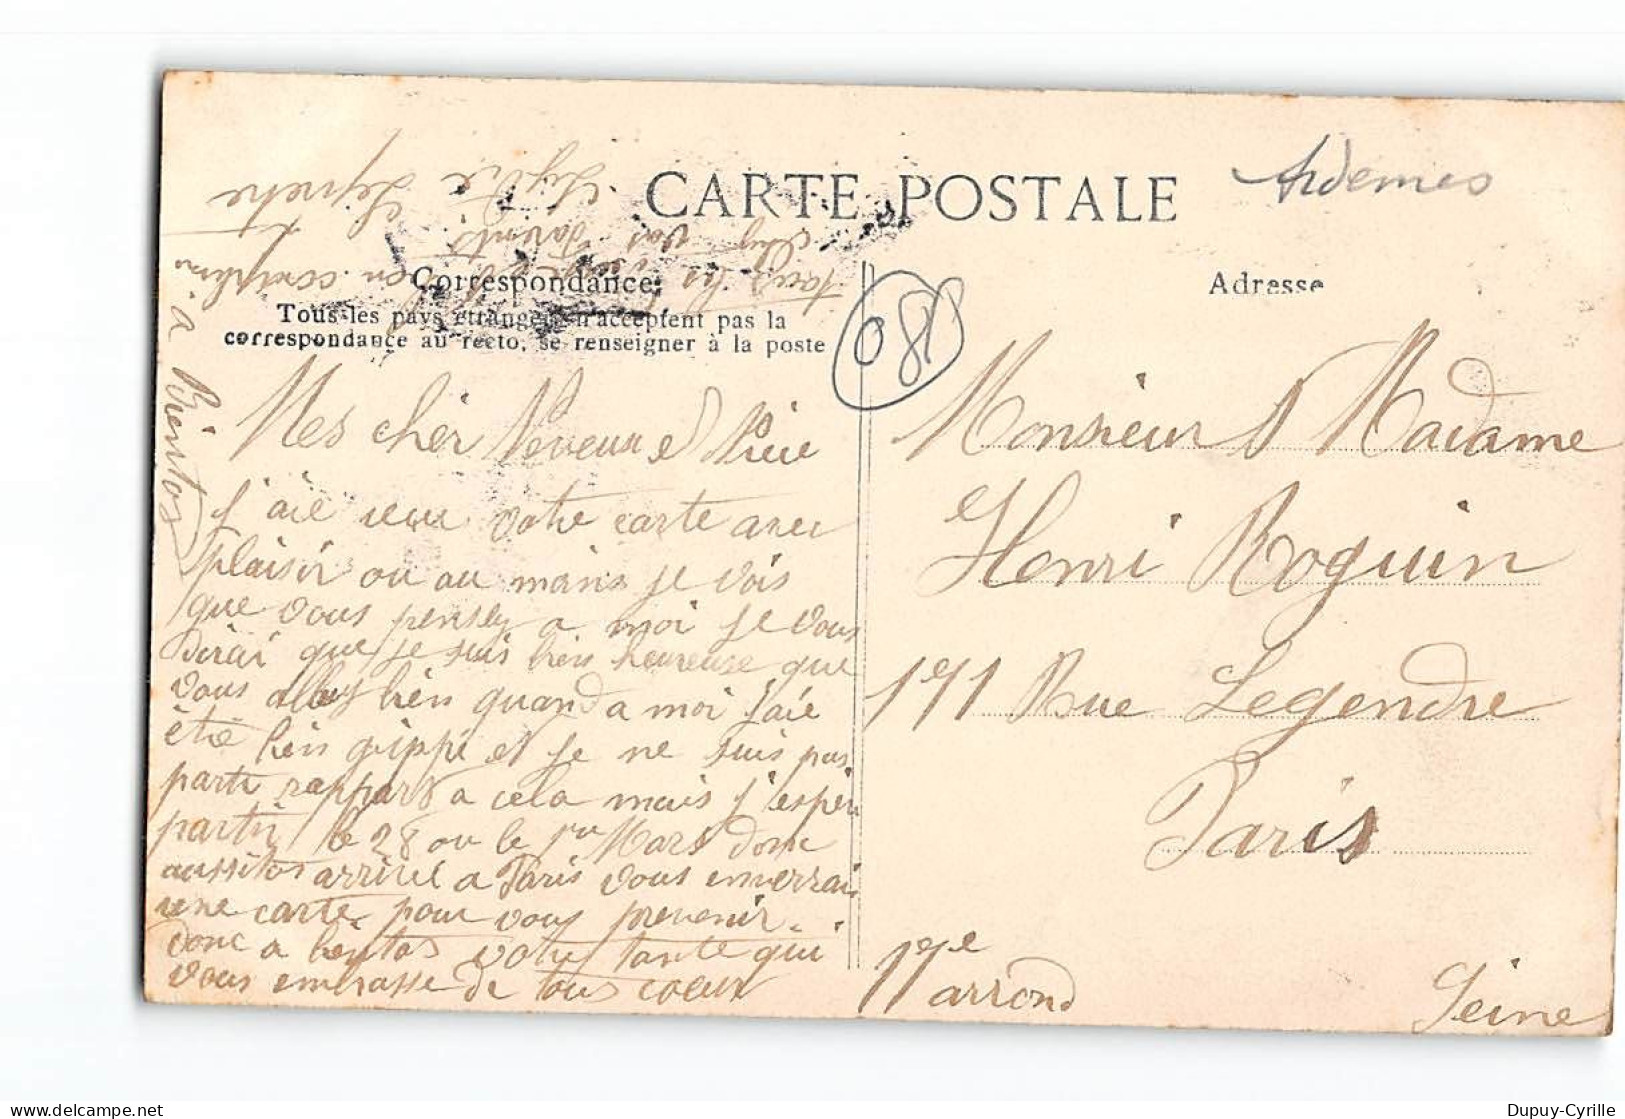 CARTE POSTALE
Ardennes
Correspondance
Tous les pays étrangers n'acceptent pas la
correspondance au recto, se renseigner à la poste
Adresse
088
Mes cher Neveux et Niece
j'aie recu votre carte avec
plaisir ou au mains je vois
que vous pensez a moi je vous
dirai que je suis bien heureuse que
vous allez bien quand a moi j'aie
étié bien grippé et je ne suis pas
parti rapport a cela mais j'espère
partir le 28 ou le 1er Mars donc
aussitos arrivé a Paris vous enverrai
une carte pour vous prevenir.
donc a bientos votre tante qui
vous embrasse de tous coeur
a Bientos
vos parents
Lydie
Monsieur & Madame
Henri Roguin
171 Rue Legendre
Paris
17e arrond
Seine
Dupuy-Cyrille